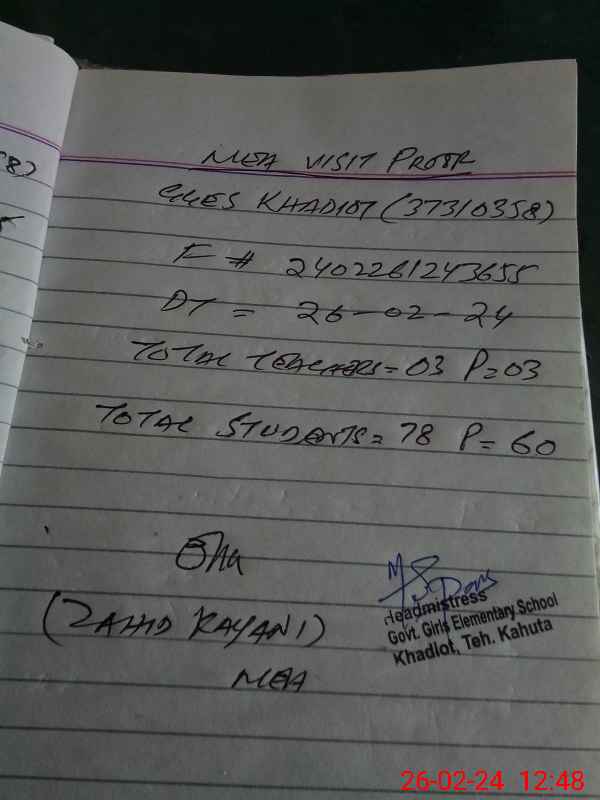 8)
MEA VISIT PROOF
GGES KHADIOT (37310358)
F # 2402261243655
DT = 26-02-24
TOTAL TEACHERS = 03 P=03
TOTAL STUDENTS = 78 P= 60
(ZAHID KAYANI)
MEA
Headmistress
Govt. Girls Elementary School
Khadiot, Teh. Kahuta
26-02-24 12:48